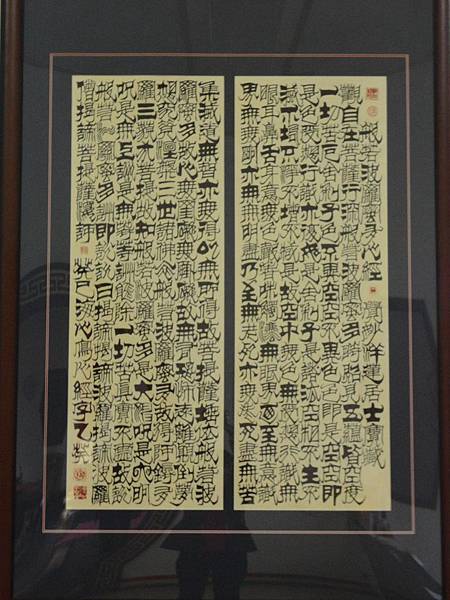 般若波羅蜜多心經 祥蓮居士寶藏
觀自在菩薩行深般若波羅蜜多時照見五蘊皆空度
一切苦厄舍利子色不異空空不異色色即是空空即
是色受想行識亦復如是舍利子是諸法空相不生不
滅不垢不淨不增不減是故空中無色無受想行識無
眼耳鼻舌身意無色聲香味觸法無眼界乃至無意識
界無無明亦無無明盡乃至無老死亦無老死盡無苦
集滅道無智亦無得以無所得故菩提薩埵依般若波
羅蜜多故心無罣礙無罣礙故無有恐怖遠離顛倒夢
想究竟涅槃三世諸佛依般若波羅蜜多故得阿耨多
羅三藐三菩提故知般若波羅蜜多是大神咒是大明
咒是無上咒是無等等咒能除一切苦真實不虛故說
般若波羅蜜多咒即說咒曰揭諦揭諦波羅揭諦波羅
僧揭諦菩提薩婆訶 癸巳沐心寫心經